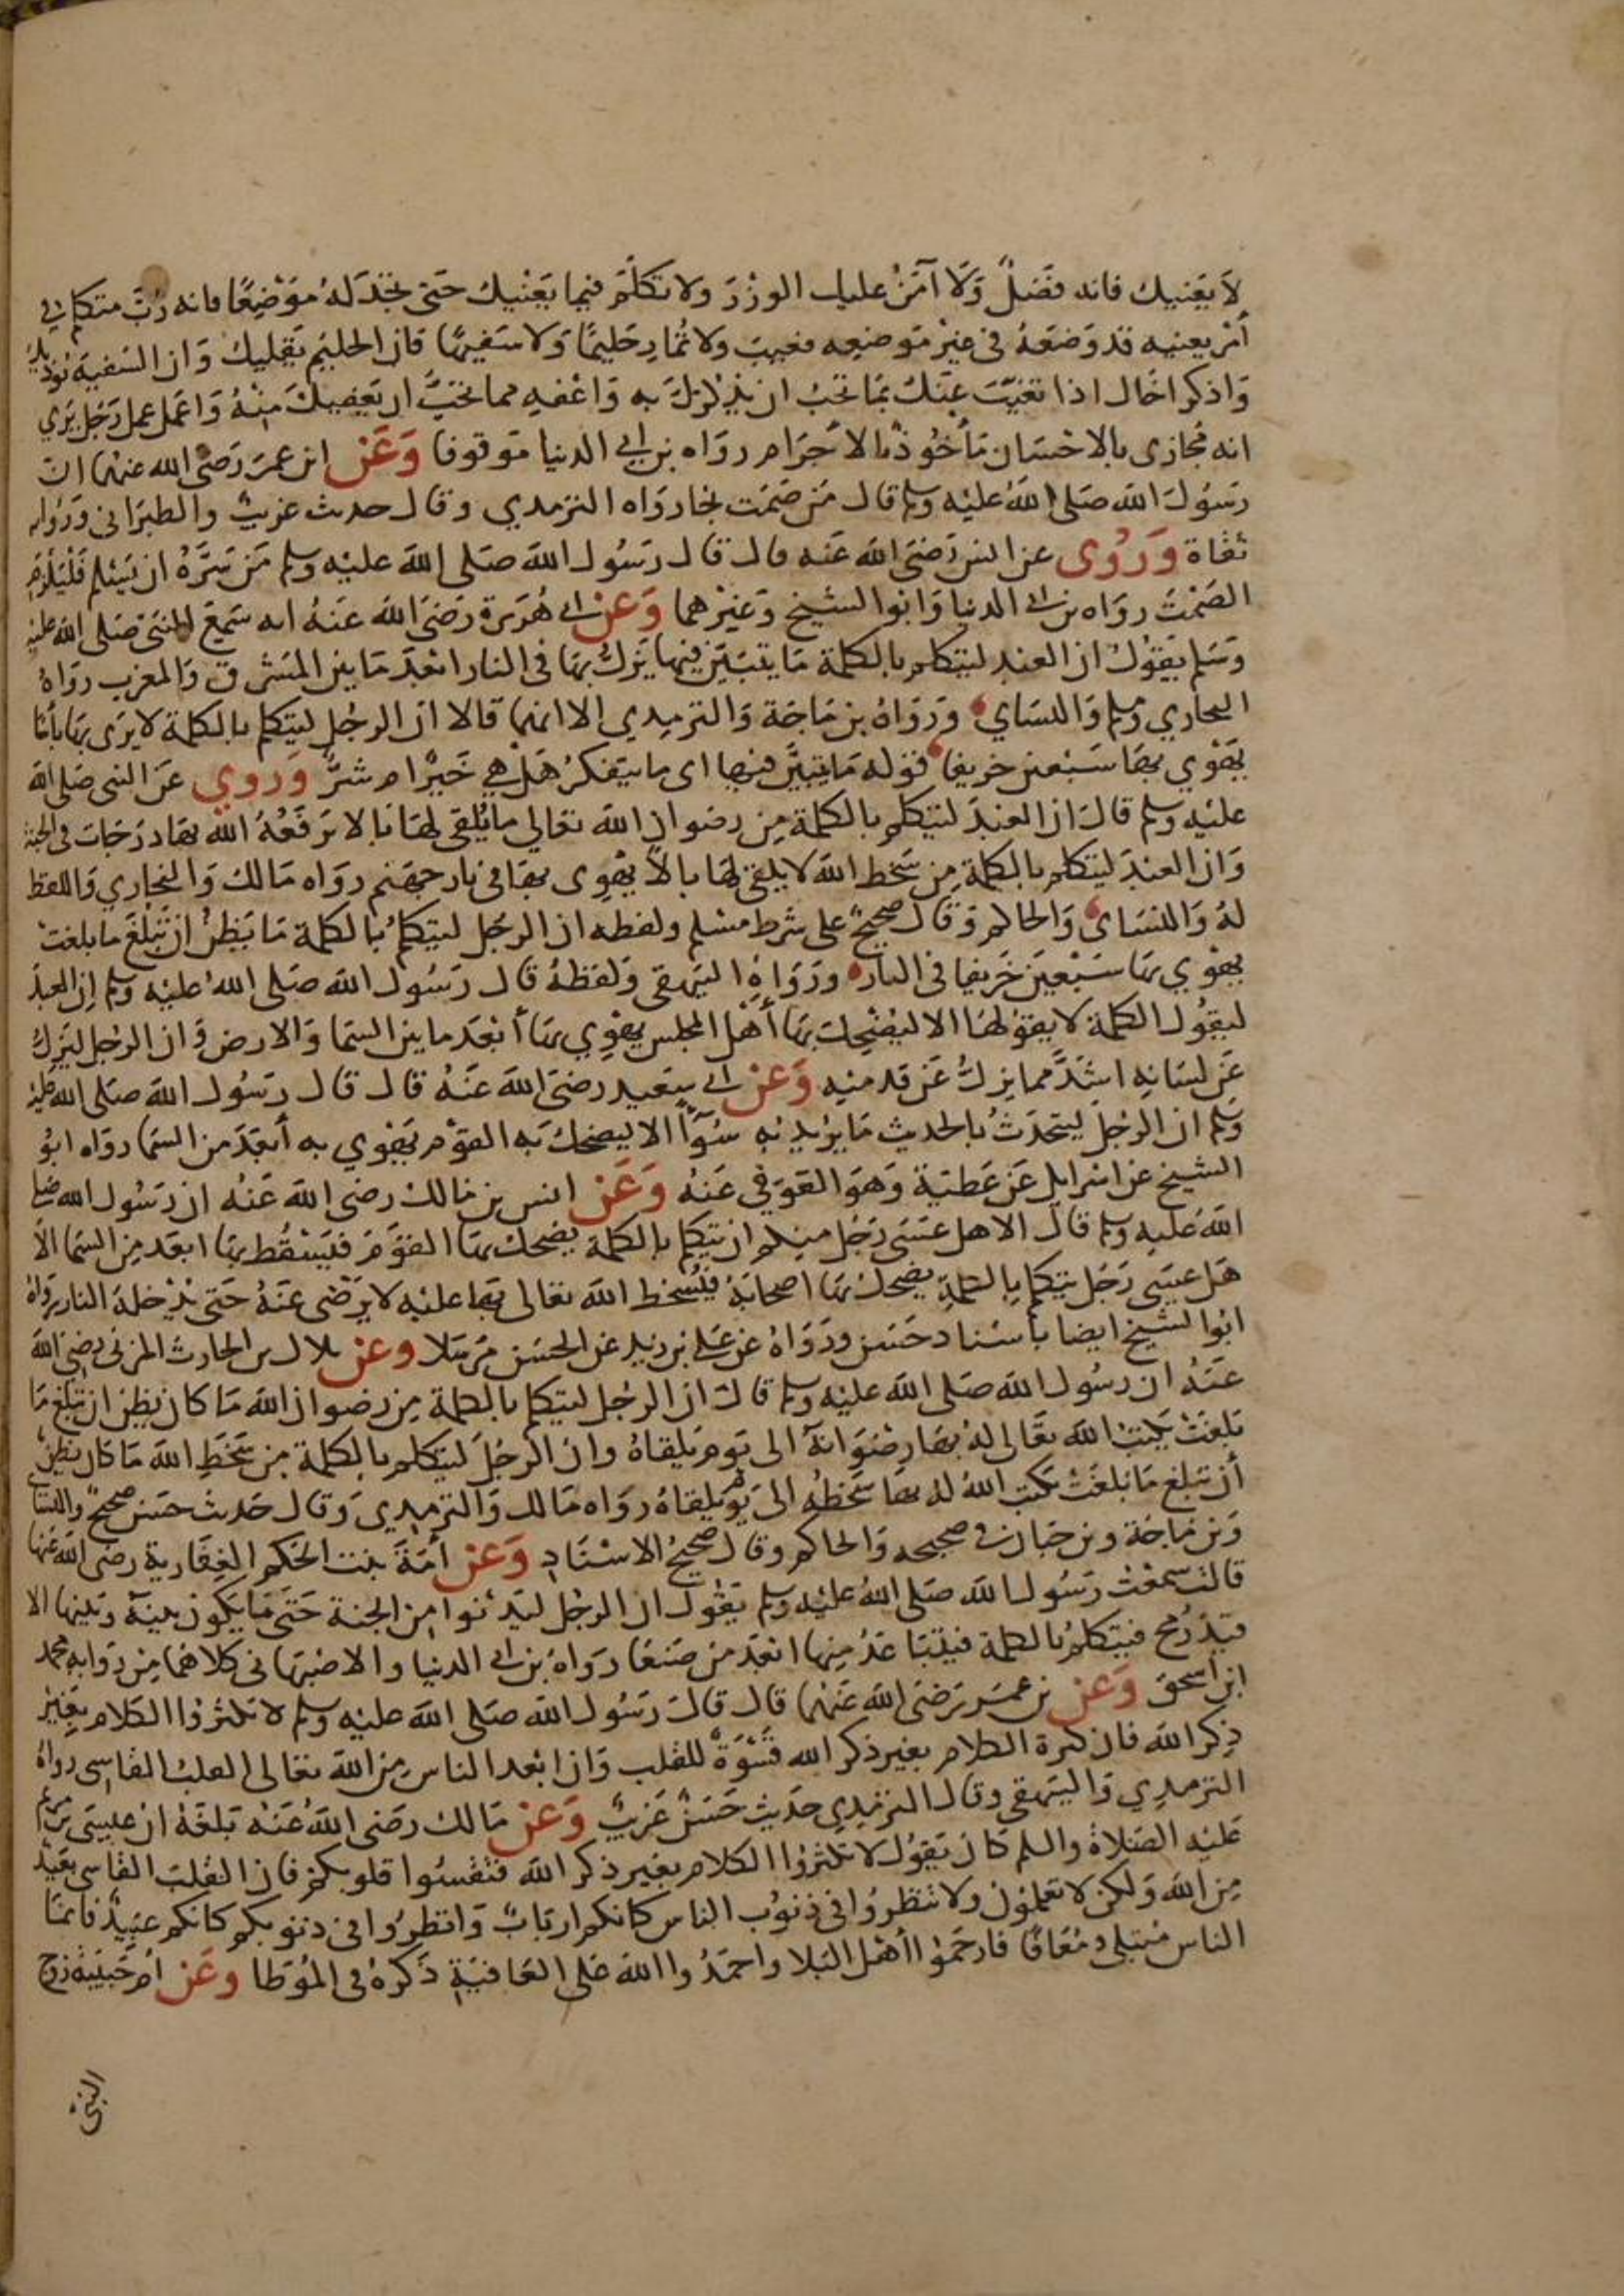 لا يعنيك فانه فضل ولا آمن عليك الوزر ولا تكلم فيما يعنيك حتى تجد له موضعا فانه رب متكلم في
أمر يعنيه قد وضعه في غير موضعه فعيب ولا تمار حليما ولا سفيها فان الحليم يقليك وان السفيه يؤذيك
واذكر اخاك اذا تغيب عنك بما تحب ان يذكرك به واعفه مما تحب ان يعفيك منه واعمل عمل رجل يرى
انه مجازى بالاحسان مأخوذ بالاجرام رواه بن ابي الدنيا موقوفا وعن ابن عمر رضى الله عنهما ان
رسول الله صلى الله عليه وسلم قال من صمت نجا رواه الترمدي وقال حديث غريب والطبراني ورواته
ثقاة وروى عن انس رضى الله عنه قال قال رسول الله صلى الله عليه وسلم من سره ان يسلم فليلزم
الصمت رواه بن ابي الدنيا وابوا الشيخ وغيرهما وعن ابي هريرة رضى الله عنه انه سمع النبى صلى الله عليه
وسلم يقول ان العبد ليتكلم بالكلمة ما يتبين فيها يزل بها فى النار ابعد ما بين المشرق والمغرب رواه
البخاري ومسلم والنساي ورواه بن ماجة والترمدي الا انهما قالا ان الرجل ليتكلم بالكلمة لا يرى بها بأسا
يهوي بها سبعين خريفا قوله ما يتبين فيها اى ما يتفكر هل هي خيرا م شر وروي عن النبى صلى الله
عليه وسلم قال ان العبد ليتكلم بالكلمة من رضوان الله تعالى ما يلقى لها بالا يرفعه الله بها درجات فى الجنة
وان العبد ليتكلم بالكلمة من سخط الله لا يلقى لها بالا يهوى بها فى نار جهنم رواه مالك والبخاري واللفظ
له والنساى والحاكم وقال صحيح على شرط مسلم ولفظه ان الرجل ليتكلم بالكلمة ما يظن ان تبلغ ما بلغت
يهوي بها سبعين خريفا فى النار ورواه البيهقى ولفظه قال رسول الله صلى الله عليه وسلم ان العبد
ليقول الكلمة لا يقولها الا ليضحك بها أهل المجلس يهوي بها أبعد ما بين السما والارض وان الرجل ليزل
عن لسانه اشد مما يزل عن قدميه وعن ابي سعيد رضى الله عنه قال قال رسول الله صلى الله عليه
وسلم ان الرجل ليتحدث بالحديث ما يريد به سوأ الا ليضحك به القوم يهوي به أبعد من السما رواه ابو
الشيخ عن اسرايل عن عطية وهو العوفي عنه وعن انس بن مالك رضى الله عنه ان رسول الله صلى
الله عليه وسلم قال الا هل عسى رجل منكم ان يتكلم بالكلمة يضحك بها القوم فيسقط بها ابعد من السما الا
هل عسى رجل يتكلم بالكلمة يضحك بها اصحابه فيسخط الله تعالى بها عليه لا يرضى عنه حتى يدخله النار رواه
ابوا الشيخ ايضا بأسناد حسن ورواه عن على بن زيد عن الحسن مرسلا وعن بلال بن الحارث المزنى رضى الله
عنه ان رسول الله صلى الله عليه وسلم قال ان الرجل ليتكلم بالكلمة من رضوان الله ما كان يظن ان تبلغ ما
بلغت يكتب الله تعالى له بها رضوانه الى يوم يلقاه وان الرجل ليتكلم بالكلمة من سخط الله ما كان يظن
أن تبلغ ما بلغت يكتب الله له بها سخطه الى يوم يلقاه رواه مالك والترمدي وقال حديث حسن صحيح والنساي
وبن ماجة وبن حبان فى صحيحه والحاكم وقال صحيح الاسناد وعن أمة بنت الحكم الغفارية رضى الله عنها
قالت سمعت رسول الله صلى الله عليه وسلم يقول ان الرجل ليدنوا من الجنة حتى ما يكون بينه وبينها الا
قيد رمح فيتكلم بالكلمة فيتباعد منها ابعد من صنعا رواه بن ابي الدنيا والاصبهانى كلاهما من رواية محمد
ابن اسحق وعن بن عمر رضى الله عنهما قال قال رسول الله صلى الله عليه وسلم لا تكثروا الكلام بغير
ذكر الله فان كثرة الكلام بغير ذكر الله قسوة للقلب وان ابعد الناس من الله تعالى القلب القاسى رواه
الترمدي والبيهقى وقال الترمدي حديث حسن غريب وعن مالك رضى الله عنه بلغه ان عيسى بن مريم
عليه الصلاة والسلم كان يقول لا تكثروا الكلام بغير ذكر الله فتقسوا قلوبكم فان القلب القاسى بعيد
من الله ولكن لا تعلمون ولا تنظروا فى ذنوب الناس كانكم ارباب وانظروا فى ذنوبكم كانكم عبيد فانما
الناس مبتلى ومعافا فارحموا أهل البلا واحمدوا الله على العافية ذكره فى الموطا وعن أم حبيبة زوج
النبى